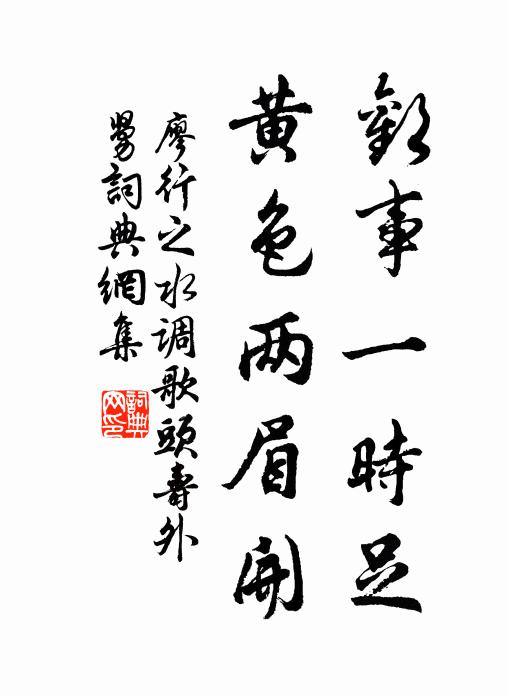 歡事一時足
黄色两眉開
廖行之水调歌頭壽外
舅詞典網集
詞典
网印